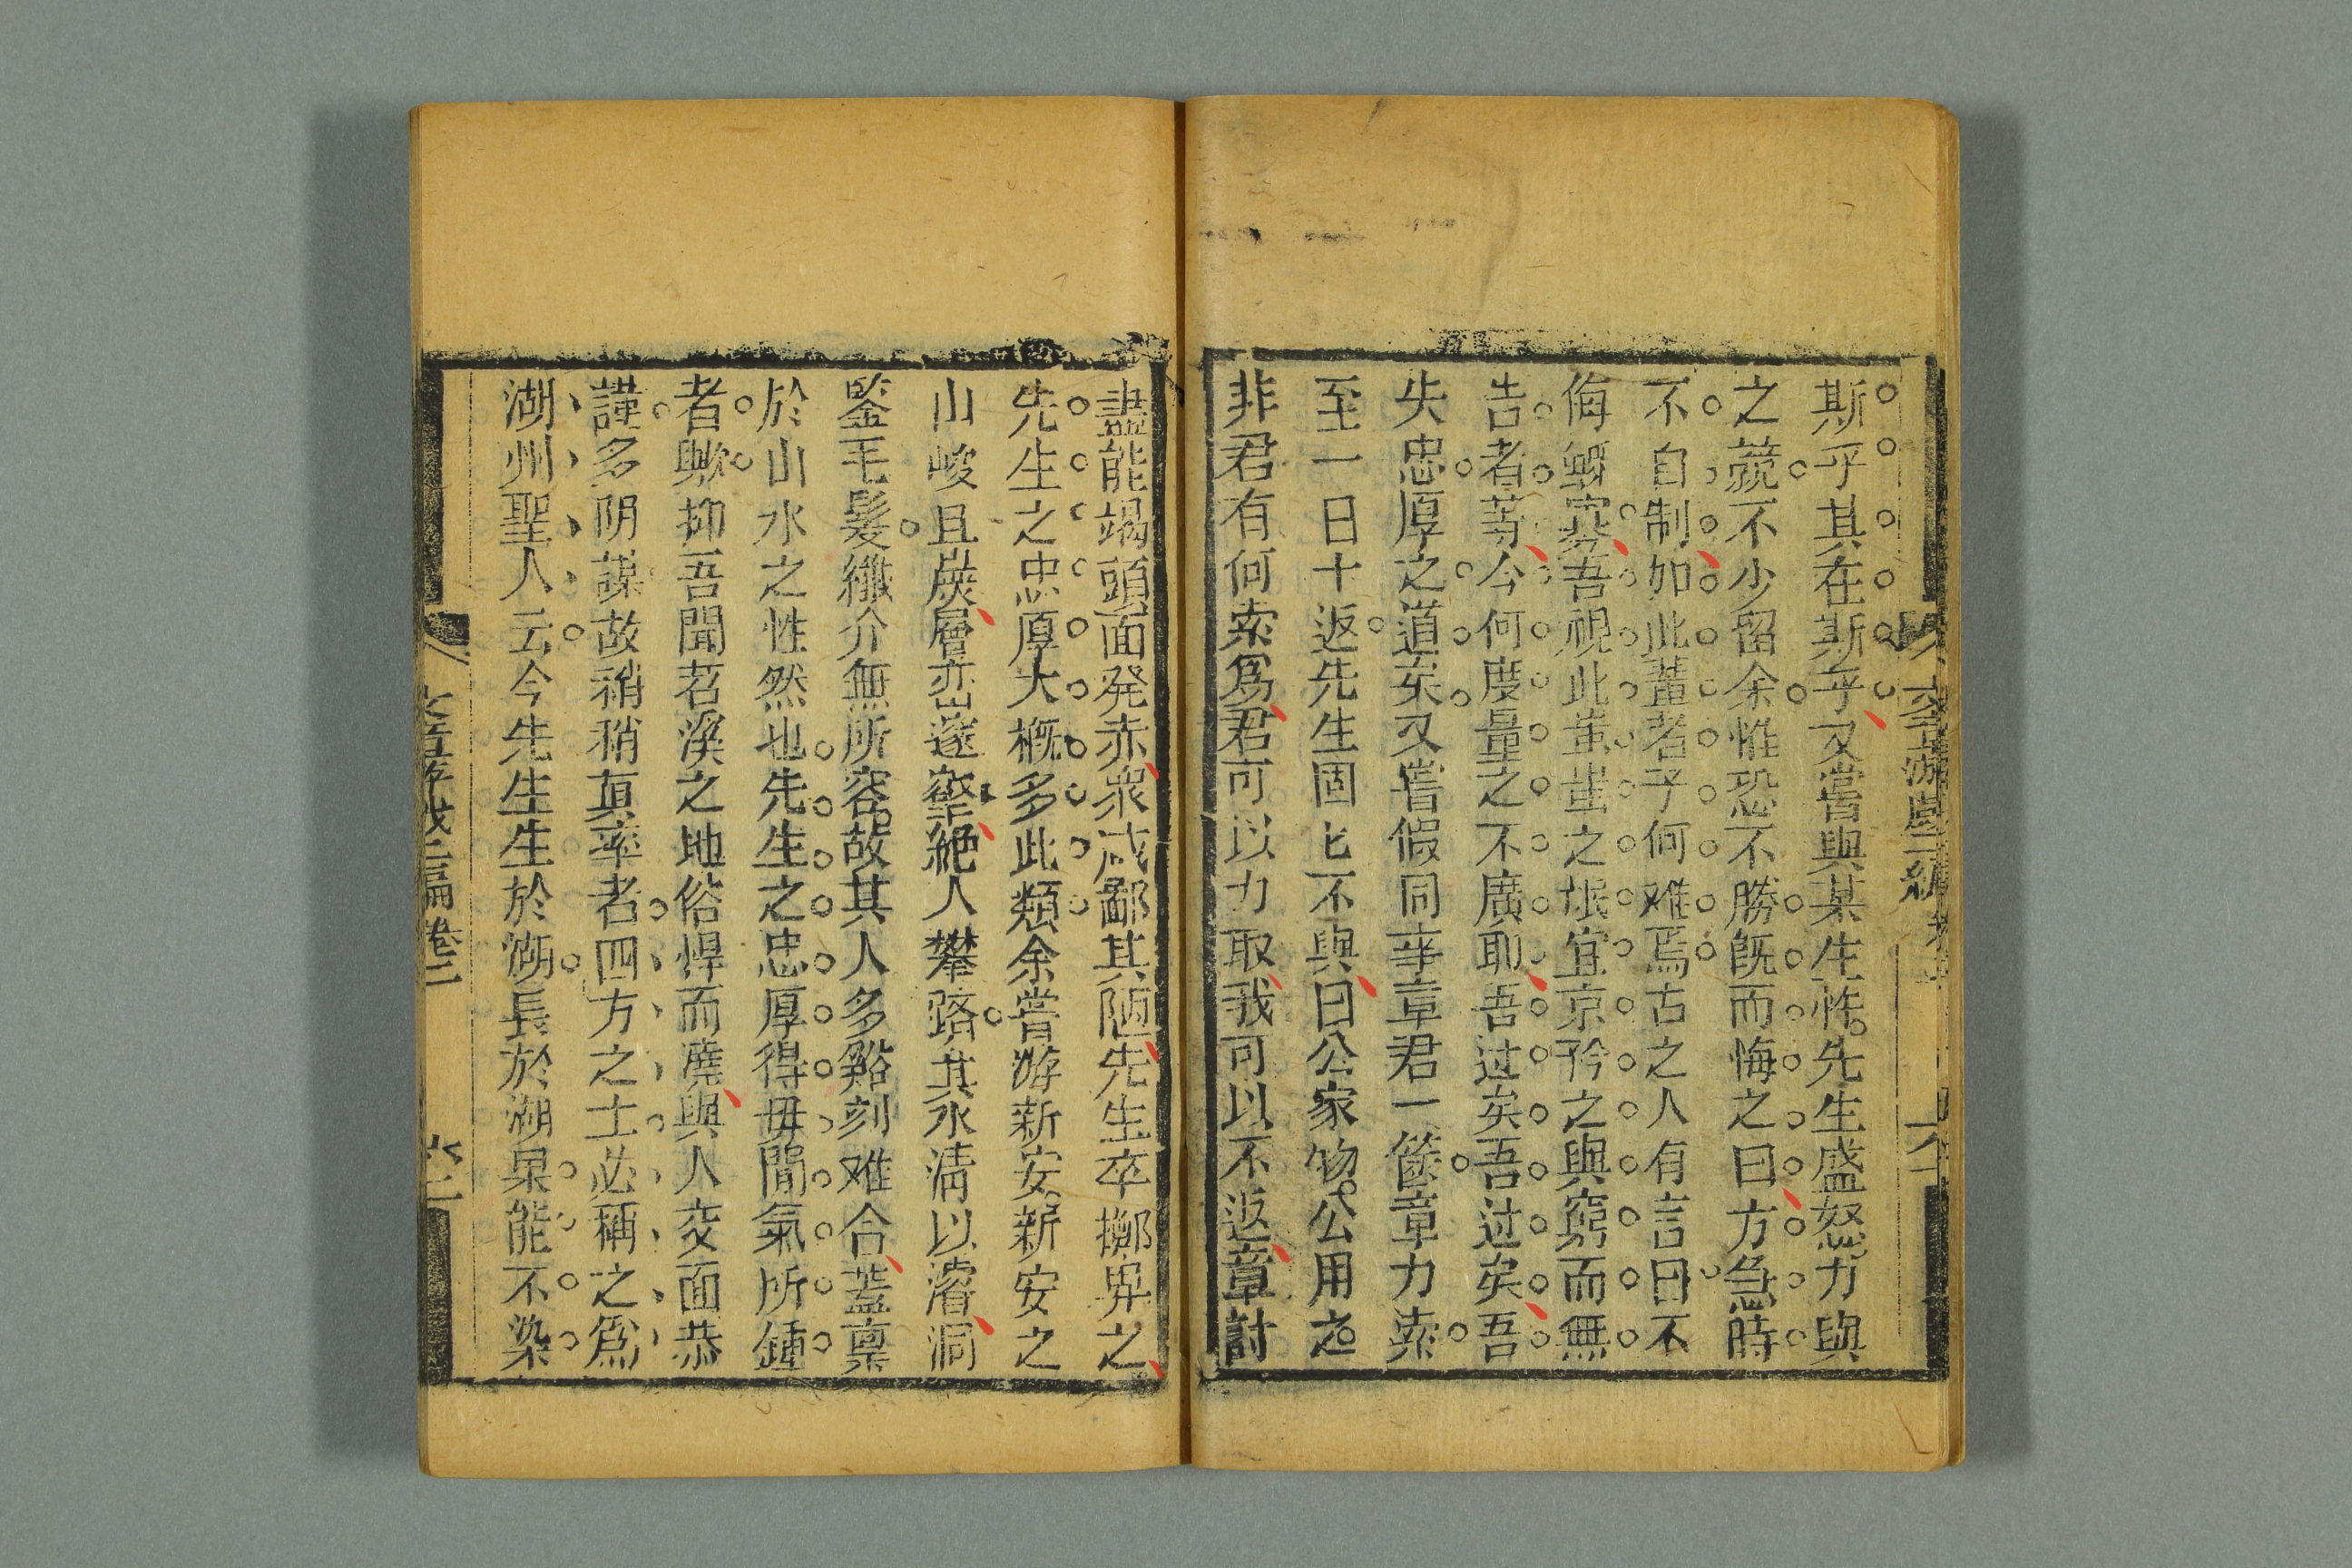 斯乎其在斯乎又嘗與某生性先生盛怒力與
之競不少留余惟恐不勝旣而悔之曰方急時
不自制如此輩者予何难焉古之人有言曰不
侮鰥寡吾視此蚩蚩之氓宜哀矜之與窮而無
告者等今何度量之不廣耶吾过矣吾过矣吾
失忠厚之道矣又嘗假同寅章君一篋章力索
至一日十返先生固匕不與曰公家物公用之
非君有何索爲君可以力取我可以不返章計
盡能竭頭面発赤衆咸鄙其陋先生卒擲畀之
先生之忠厚大槪多此類余嘗游新安新安之
山峻且嵄層巒邃壑絶人攀躋其水清以濬洞
鑒毛髮纖介無所容故其人多谿刻难合蓋禀
於山水之性然也先生之忠厚得毋間氣所鍾
者歟抑吾聞苕溪之地俗悍而澆與人交面恭
謹多阴謀故稍稍眞率者四方之士必稱之爲
湖州聖人云今先生生於湖長於湖杲能不染
卷二